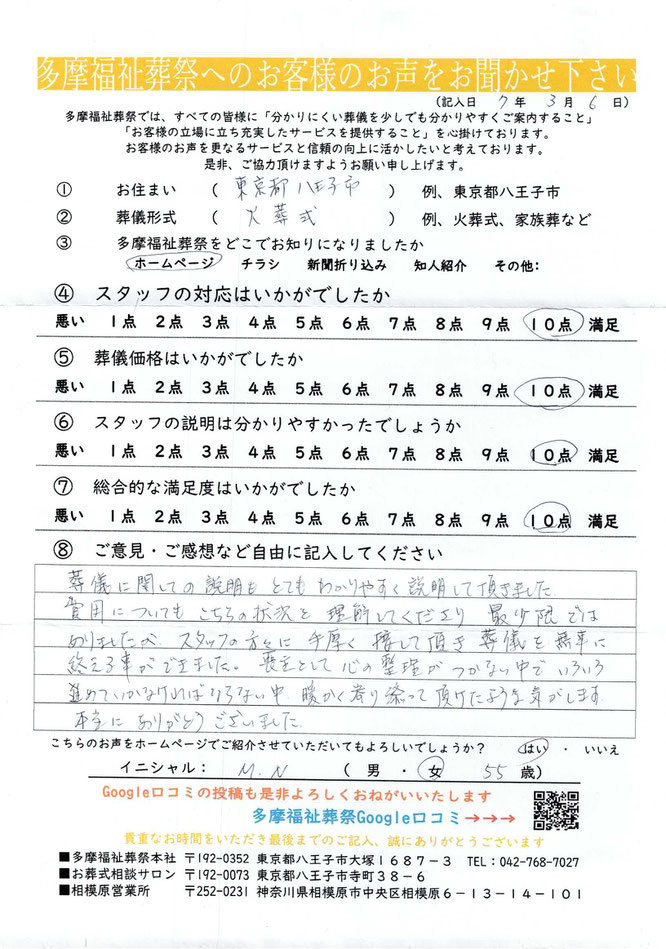 多摩福祉葬祭へのお客様のお声をお聞かせ下さい
(記入日 7 年 3 月 6 日)
多摩福祉葬祭では、すべての皆様に「分かりにくい葬儀を少しでも分かりやすくご案内すること」
「お客様の立場に立ち充実したサービスを提供すること」を心掛けております。
お客様のお声を更なるサービスと信頼の向上に活かしたいと考えております。
是非、ご協力頂けますようお願い申し上げます。
① お住まい ( 東京都八王子市 ) 例、東京都八王子市
② 葬儀形式 ( 火葬式 ) 例、火葬式、家族葬など
③ 多摩福祉葬祭をどこでお知りになりましたか
ホームページ チラシ 新聞折り込み 知人紹介 その他:
④ スタッフの対応はいかがでしたか
悪い 1点 2点 3点 4点 5点 6点 7点 8点 9点 10点 満足
⑤ 葬儀価格はいかがでしたか
悪い 1点 2点 3点 4点 5点 6点 7点 8点 9点 10点 満足
⑥ スタッフの説明は分かりやすかったでしょうか
悪い 1点 2点 3点 4点 5点 6点 7点 8点 9点 10点 満足
⑦ 総合的な満足度はいかがでしたか
悪い 1点 2点 3点 4点 5点 6点 7点 8点 9点 10点 満足
⑧ ご意見・ご感想など自由に記入してください
葬儀に関しての説明もとてもわかりやすく説明して頂きました
費用についてもこちらの状況を理解してくださり 最少限では
ありましたが、スタッフの方々に手厚く接して頂き葬儀を無事に
終える事ができました。喪主として心の整理がつかない中でいろいろ
進めていかなければならない中 暖かく寄り添って頂けたような気がします。
本当にありがとうございました。
こちらのお声をホームページでご紹介させていただいてもよろしいでしょうか? はい ・ いいえ
イニシャル: M.N ( 男 ・ 女 55 歳)
Google口コミの投稿も是非よろしくおねがいいたします
多摩福祉葬祭Google口コミ→→→
貴重なお時間をいただき最後までのご記入、誠にありがとうございます
■多摩福祉葬祭本社 〒192-0352 東京都八王子市大塚1687-3 TEL:042-768-7027
■お葬式相談サロン 〒192-0073 東京都八王子市寺町38-6
■相模原営業所 〒252-0231 神奈川県相模原市中央区相模原6-13-14-101